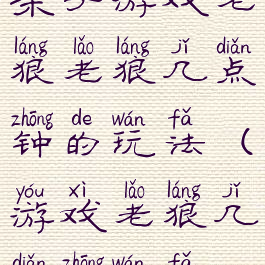 láng lǎo láng jǐ diǎn
狼老狼几点
zhōng de wán fǎ
钟的玩法（
yóu xì lǎo láng jǐ
游戏老狼几
diǎn zhōng wán fǎ